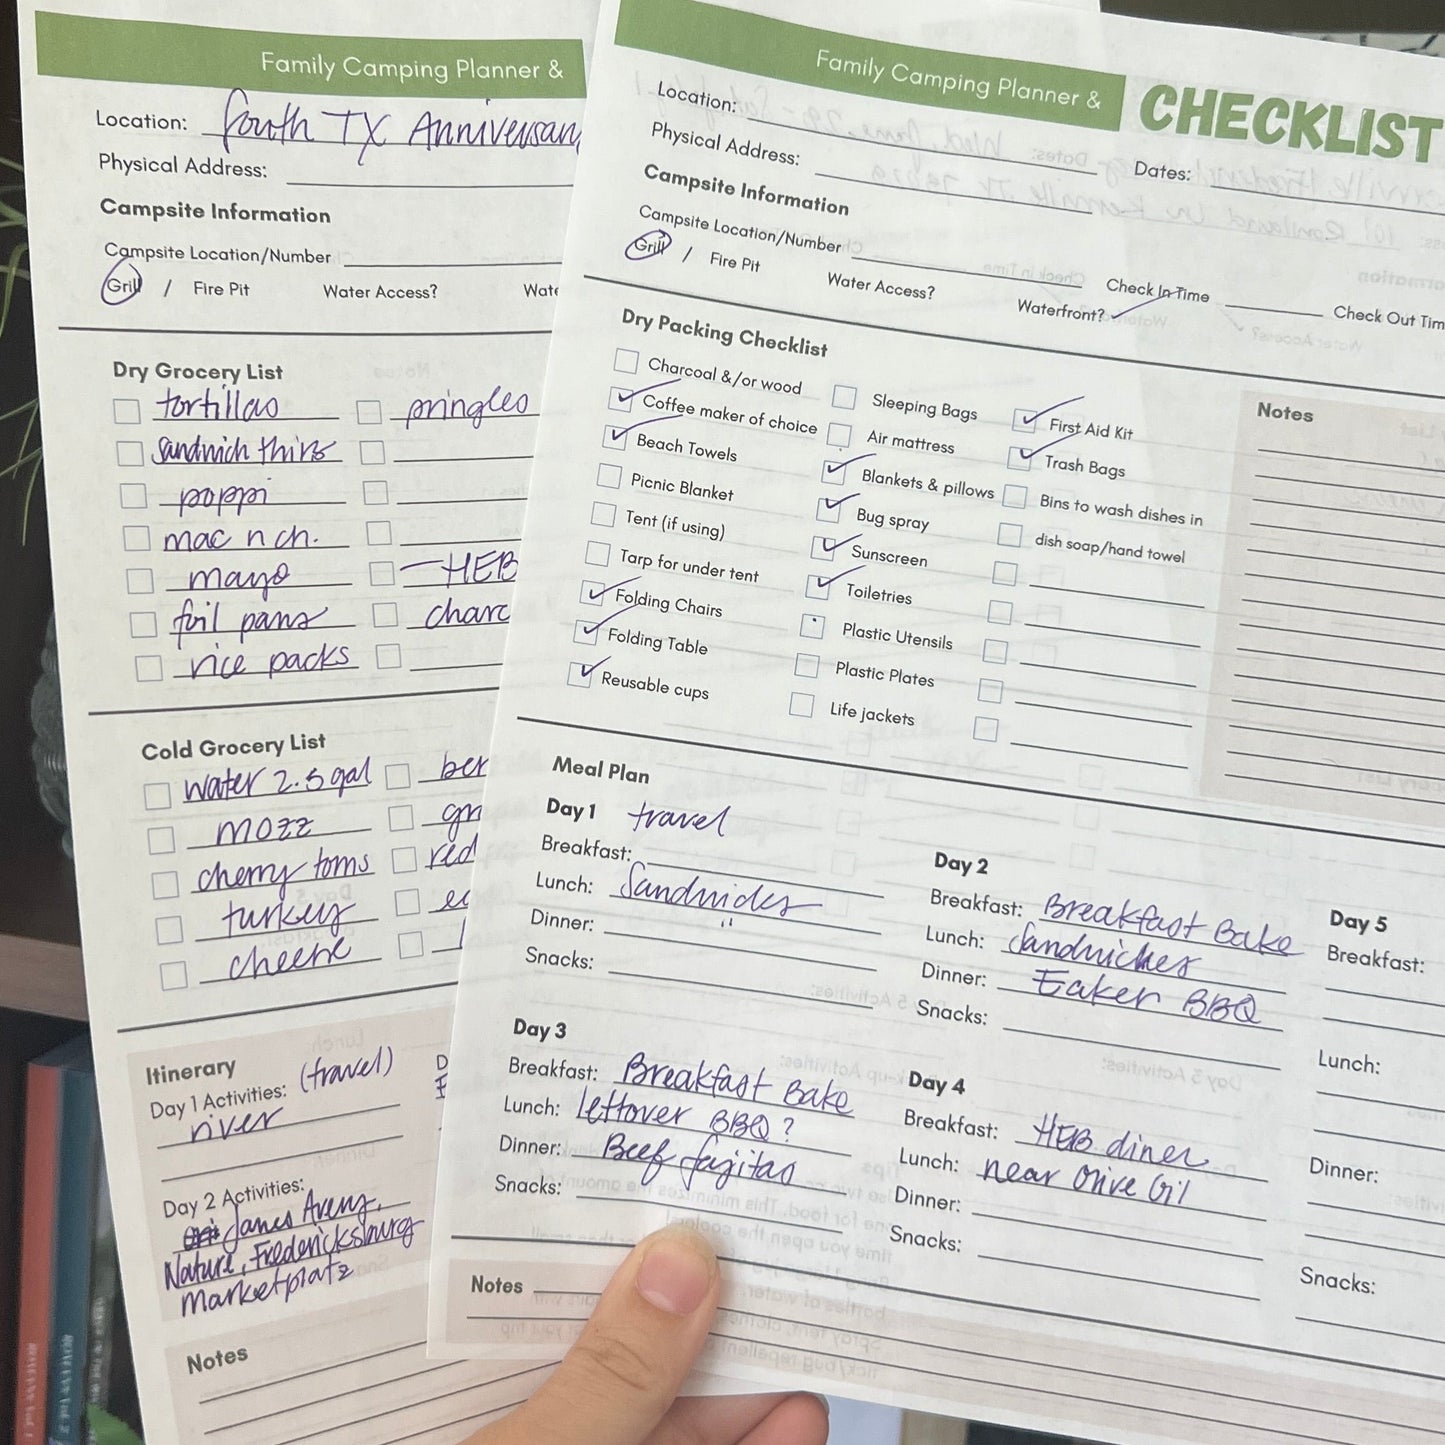 Family Camping Planner &
Location: South TX Anniversary
Physical Address:
Campsite Information
Campsite Location/Number
Grill / Fire Pit Water Access?
Dry Grocery List
tortillas pringles
sandwich thins
poppi
mac n ch.
mayo HEB
foil pans charc
rice packs
Cold Grocery List
water 2.5 gal ber
mozz
cherry toms red
turkey
cheese
Itinerary
Day 1 Activities: (travel)
river
Day 2 Activities:
James Avery,
Nature, Fredericksburg
Marketplatz
Notes
Family Camping Planner & CHECKLIST
Location:
Dates:
Physical Address:
Campsite Information
Campsite Location/Number
Check In Time
Check Out Tim
Grill / Fire Pit Water Access? Waterfront?
Dry Packing Checklist
Charcoal &/or wood
Coffee maker of choice
Beach Towels
Picnic Blanket
Tent (if using)
Tarp for under tent
Folding Chairs
Folding Table
Reusable cups
Sleeping Bags
Air mattress
Blankets & pillows
Bug spray
Sunscreen
Toiletries
Plastic Utensils
Plastic Plates
Life jackets
First Aid Kit
Trash Bags
Bins to wash dishes in
dish soap/hand towel
Notes
Meal Plan
Day 1 travel
Breakfast:
Lunch: Sandwiches
Dinner: "
Snacks:
Day 2
Breakfast: Breakfast Bake
Lunch: Sandwiches
Dinner: Eaker BBQ
Snacks:
Day 3
Breakfast: Breakfast Bake
Lunch: leftover BBQ?
Dinner: Beef fajitas
Snacks:
Day 4
Breakfast: HEB diner
Lunch: near Olive Oil
Dinner:
Snacks:
Day 5
Breakfast:
Lunch:
Dinner:
Snacks:
Notes